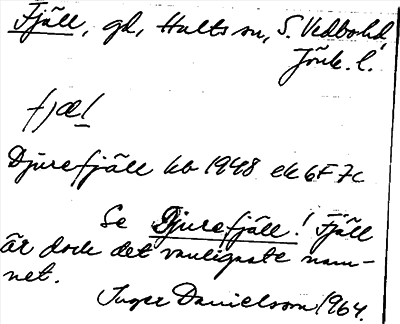 Fjäll, gd, Hults sn, S. Vedbohd,
Jönk. l.
fjæl
Djurefjäll kb 1948 ek 6F 7c
Se Djurefjäll! Fjäll
är dock det vanligaste nam-
net.
Inger Danielsson 1964.